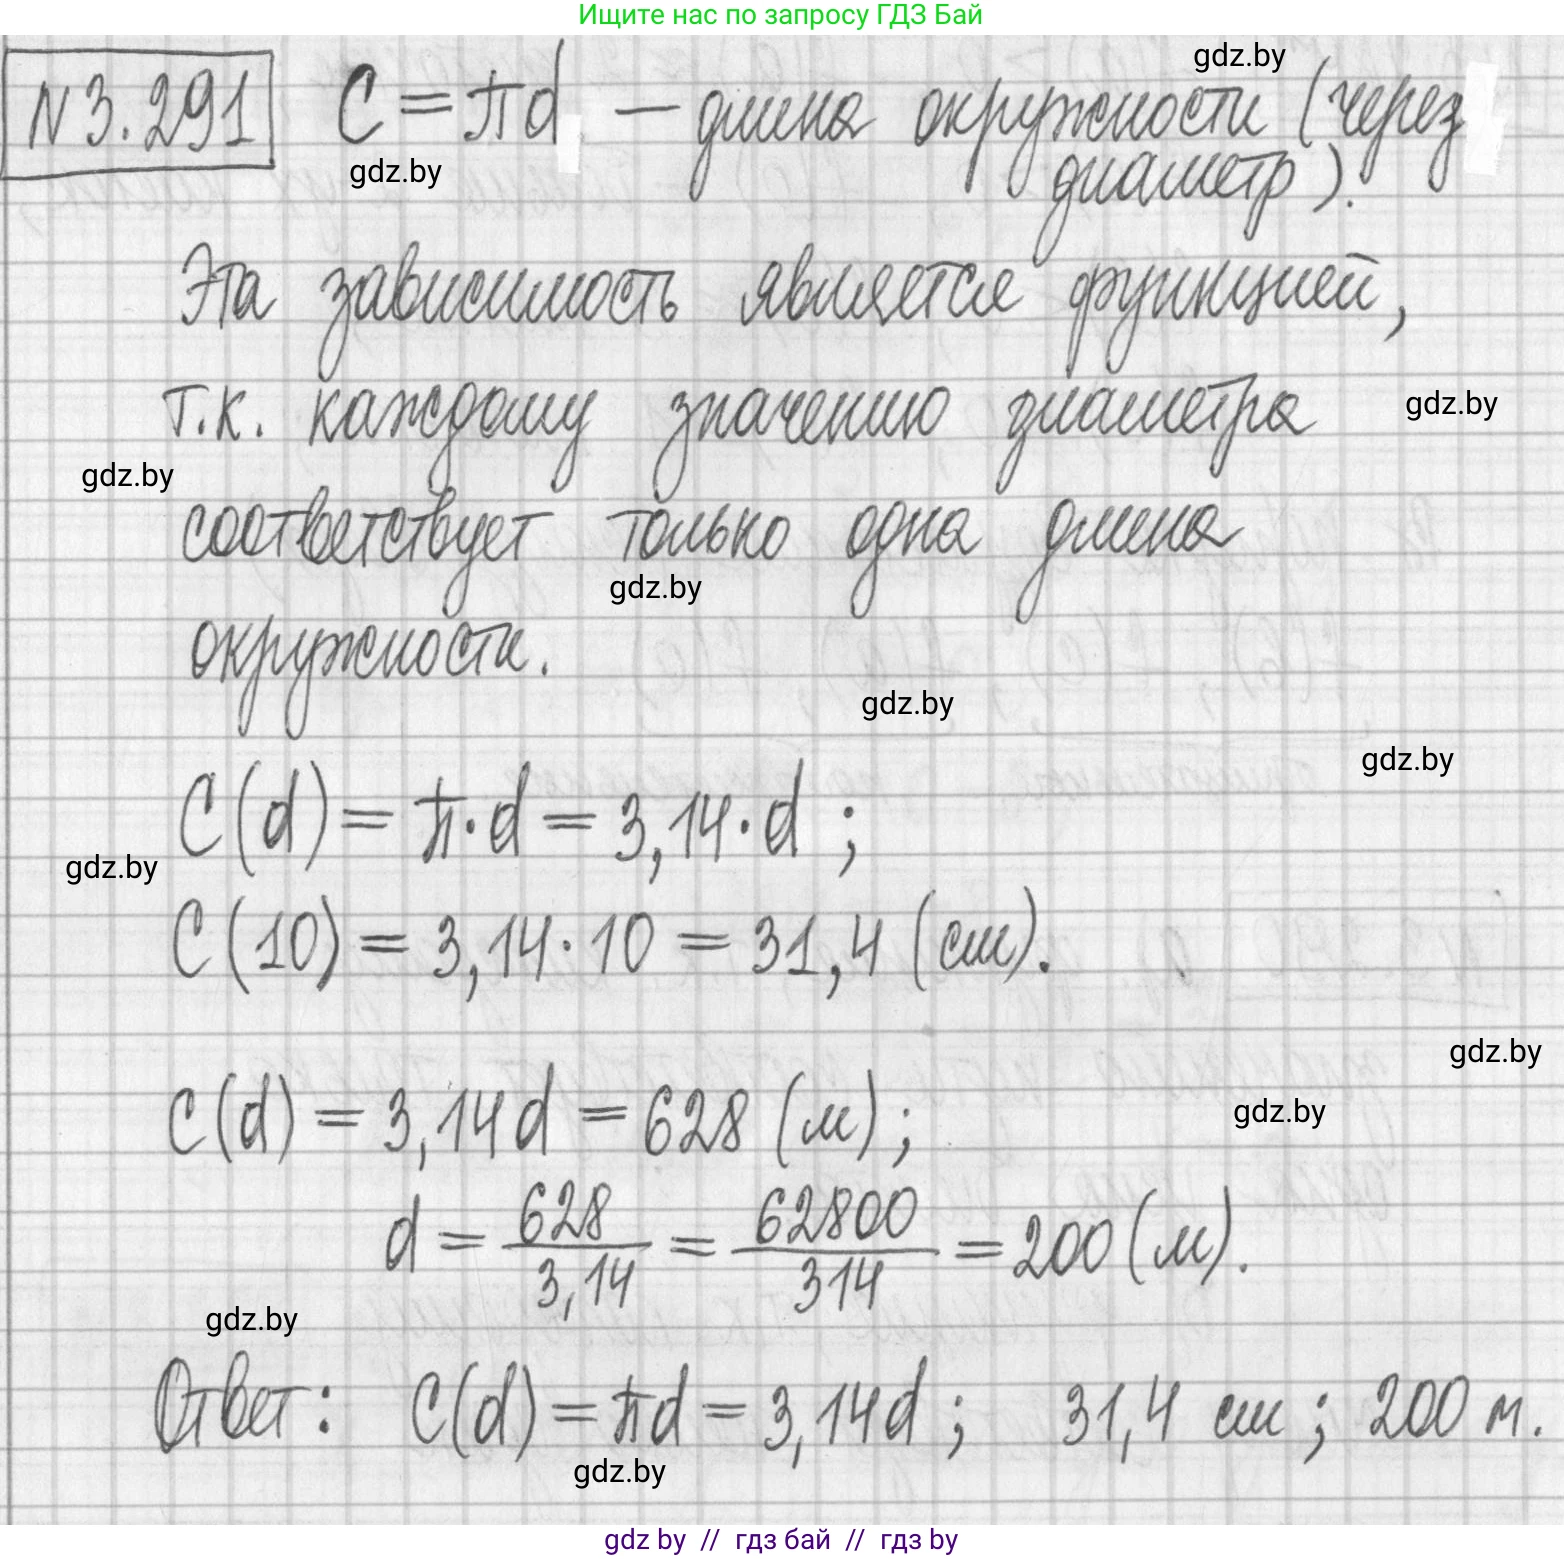 Ищите нас по запросу ГДЗ Бай
gdz.by
N 3.291 C = πd — длина окружности (через
gdz.by
диаметр).
Эта зависимость является функцией,
т.к. каждому значению диаметра
gdz.by
gdz.by
соответствует только одна длина
gdz.by
окружности.
gdz.by
gdz.by
C(d) = π·d = 3,14·d ;
gdz.by
C(10) = 3,14·10 = 31,4 (см).
gdz.by
C(d) = 3,14d = 628 (м) ;
gdz.by
d = 628/3,14 = 62800/314 = 200 (м).
gdz.by
Ответ: C(d) = πd = 3,14d ; 31,4 см ; 200 м.
gdz.by
gdz by // гдз бай // гдз by